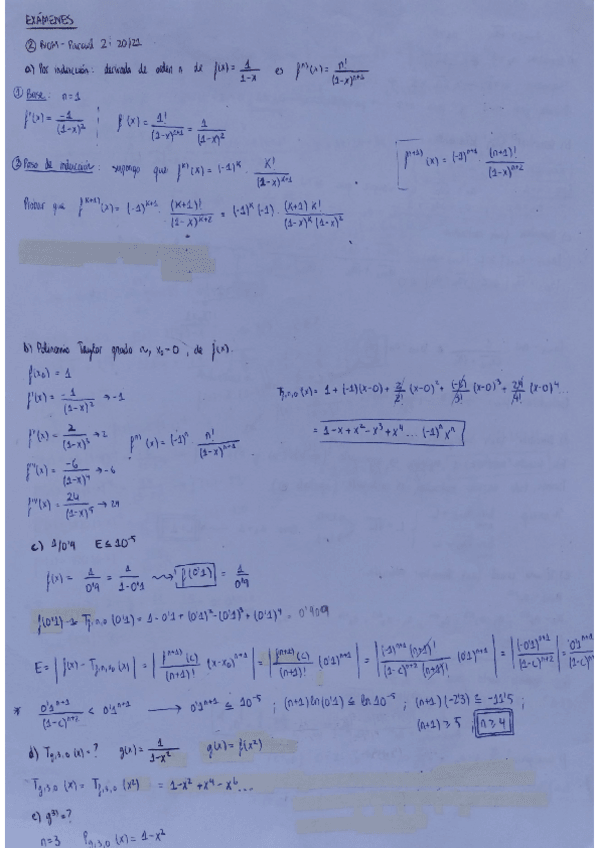 EXÁMENES
② BIOM - Parcial 2: 20/21
a) Por inducción: derivada de orden n de f(x) = 1/(1-x) es fⁿ⁾(x) = n!/(1-x)ⁿ⁺¹
① Base: n=1
f'(x) = -1/(1-x)² ; f'(x) = 1!/(1-x)¹⁺¹ = 1/(1-x)²
② Paso de inducción: supongo que fᵏ⁾(x) = (-1)ᵏ · k!/(1-x)ᵏ⁺¹
[fⁿ⁺¹⁾(x) = (-1)ⁿ⁺¹ · (n+1)!/(1-x)ⁿ⁺²
Probar que fᵏ⁺¹⁾(x) = (-1)ᵏ⁺¹ · (k+1)!/(1-x)ᵏ⁺² = (-1)ᵏ (-1) · (k+1) k!/(1-x)ᵏ (1-x)²
b) Polinomio Taylor grado n, x₀=0, de f(x).
f(x₀) = 1
f'(x) = -1/(1-x)² → -1
f''(x) = 2/(1-x)³ → 2
fⁿ⁾(x) = (-1)ⁿ n!/(1-x)ⁿ⁺¹
f'''(x) = -6/(1-x)⁴ → -6
f''''(x) = 24/(1-x)⁵ → 24
T_f,n,0 (x) = 1 + (-1)(x-0) + 2/2! (x-0)² + (-6)/3! (x-0)³ + 24/4! (x-0)⁴ ...
= 1-x+x²-x³+x⁴ ... (-1)ⁿ xⁿ
c) 1/0'9 E ≤ 10⁻⁵
f(x) = 1/0'9 = 1/(1-0'1) ⇝ f(0'1) = 1/0'9
f(0'1) T_f,n,0 (0'1) = 1-0'1+(0'1)²-(0'1)³+(0'1)⁴ = 0'909
E = |f(x) - T_f,n,x₀ (x)| = |fⁿ⁺¹⁾(c)/(n+1)! (x-x₀)ⁿ⁺¹| = |fⁿ⁺¹⁾(c)/(n+1)! (0'1)ⁿ⁺¹| = |(-1)ⁿ⁺¹ (n+1)!/(1-c)ⁿ⁺² (n+1)! (0'1)ⁿ⁺¹| = |(-0'1)ⁿ⁺¹/(1-c)ⁿ⁺²| = 0'1ⁿ⁺¹/(1-c)ⁿ⁺²
* 0'1ⁿ⁺¹/(1-c)ⁿ⁺² < 0'1ⁿ⁺¹ → 0'1ⁿ⁺¹ ≤ 10⁻⁵ ; (n+1) ln(0'1) ≤ ln 10⁻⁵ ; (n+1)(-2'3) ≤ -11'5 ;
(n+1) ≥ 5 ; n ≥ 4
d) T_g,3,0 (x) = ? g(x) = 1/(1-x²) g(x) = f(x²)
T_g,3,0 (x) = T_f,3,0 (x²) = 1-x²+x⁴-x⁶ ...
e) g³⁾ = ?
n=3 P_g,3,0 (x) = 1-x²